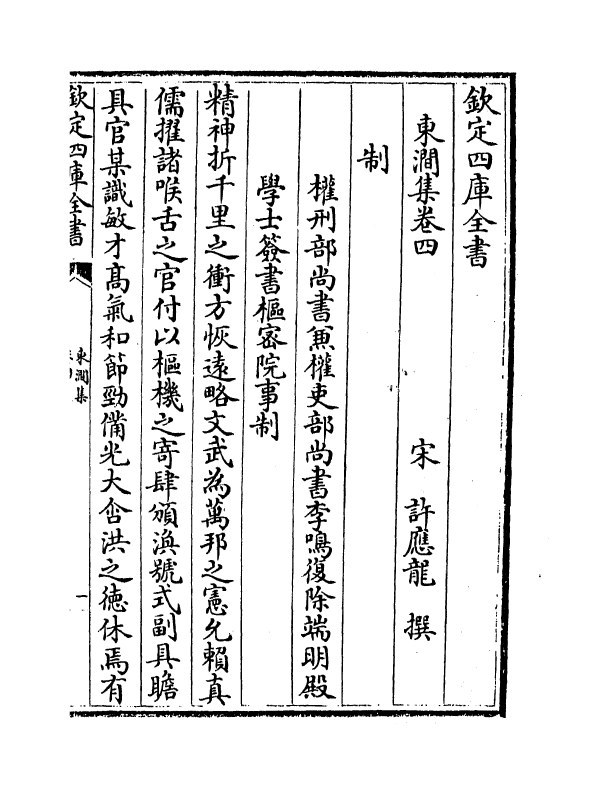 欽定四庫全書
東澗集卷四　宋　許應龍　撰
制
權刑部尚書兼權吏部尚書李鳴復除端明殿
學士簽書樞密院事制
精神折千里之衝方恢遠略文武為萬邦之憲允賴真
儒擢諸喉舌之官付以樞機之寄肆頒渙號式副具瞻
具官某識敏才高氣和節勁備光大含洪之德休焉有
欽定四庫全書
東澗集
一